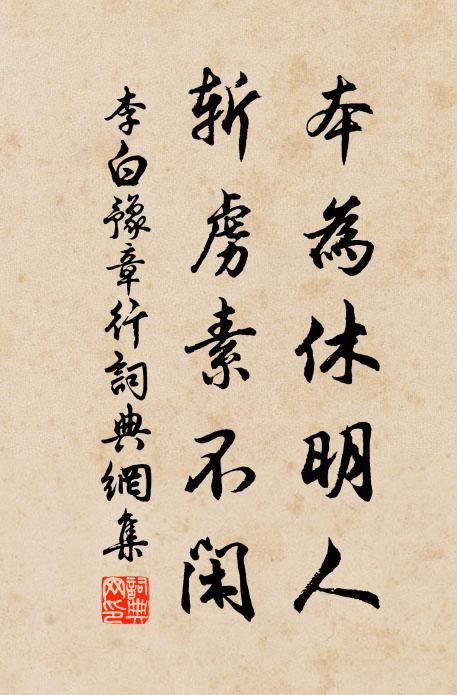 本為休明人
斬虜素不閑
李白豫章行詞典網集
詞典網印